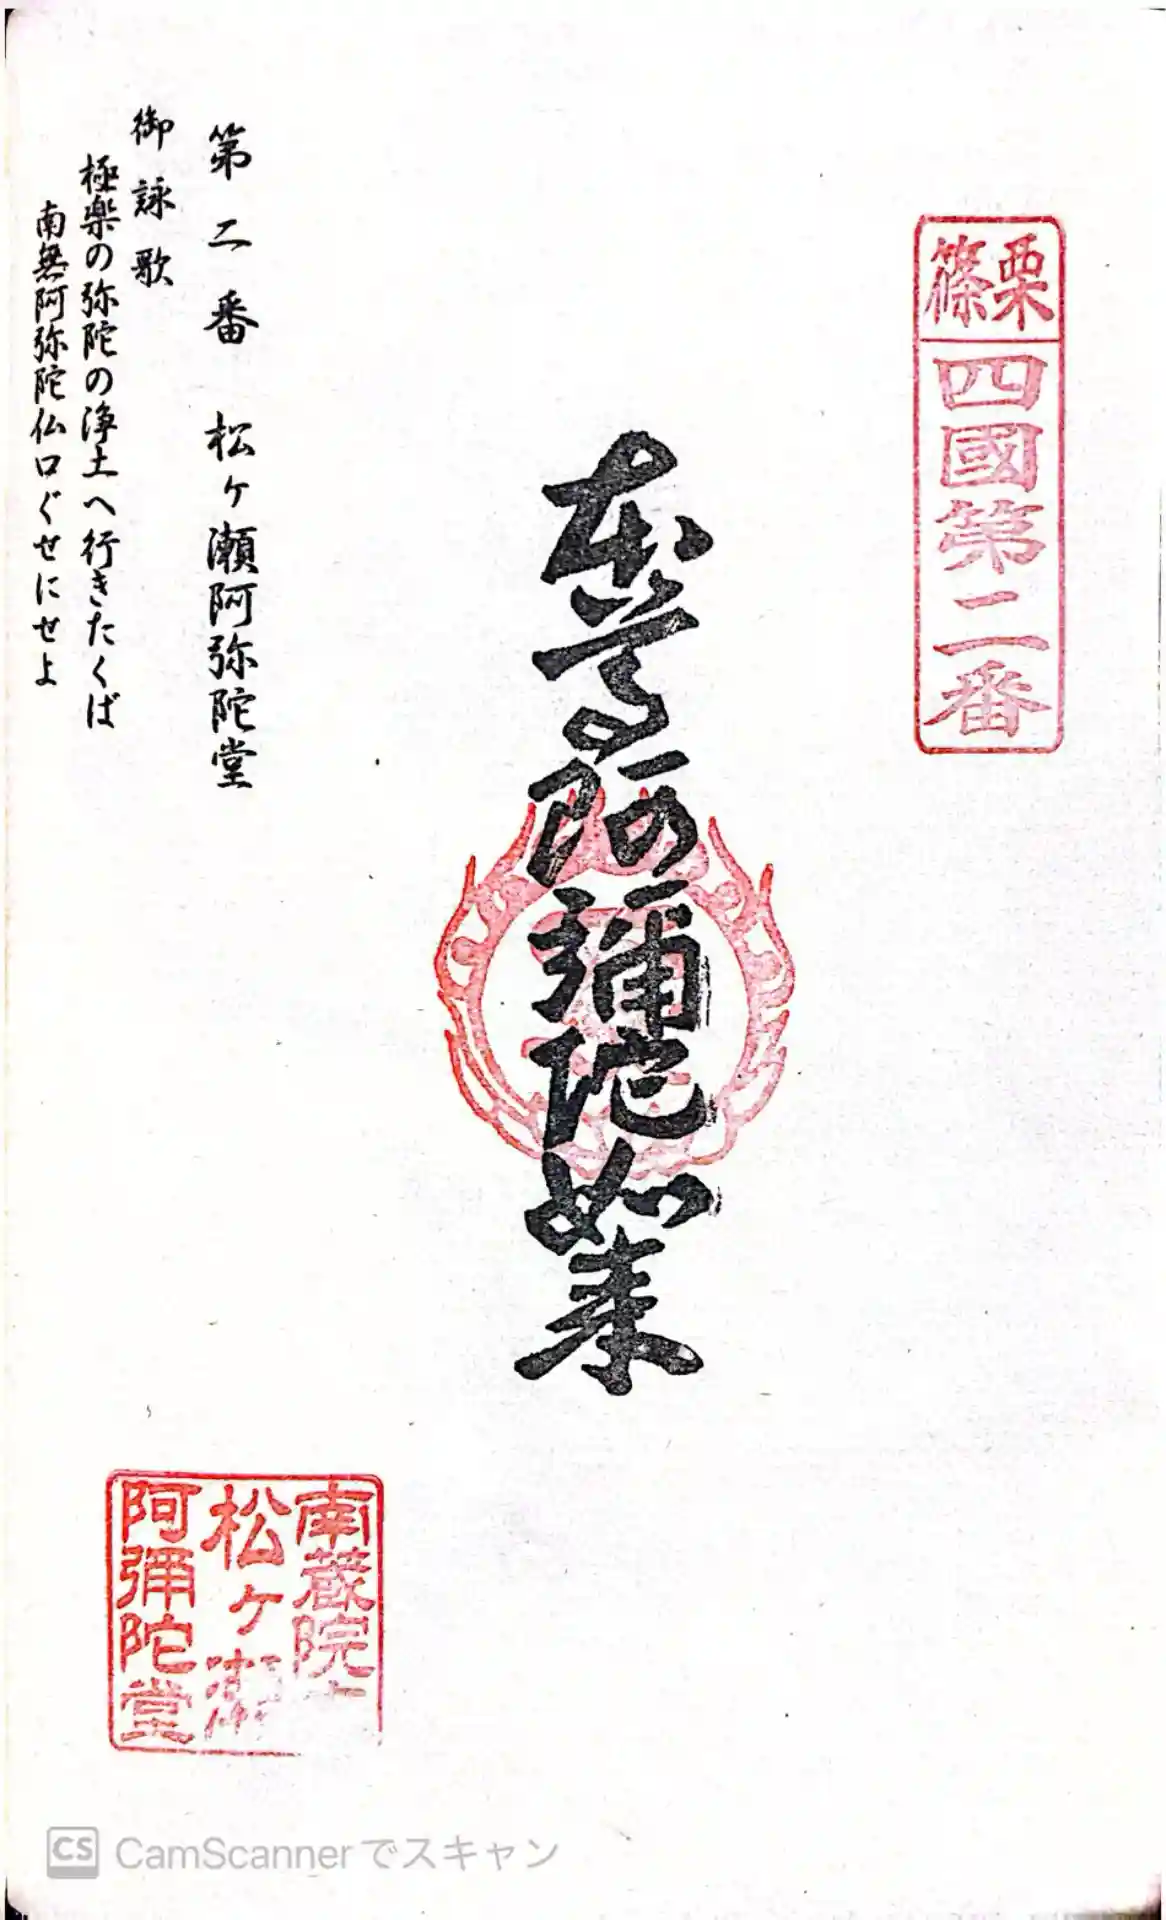 篠栗
四國第二番
本尊阿彌陀如来
第二番 松ヶ瀬阿弥陀堂
御詠歌
極楽の弥陀の浄土へ行きたくば
南無阿弥陀仏口ぐせにせよ
南蔵院
松ヶ瀬
阿彌陀堂
CS CamScannerでスキャン